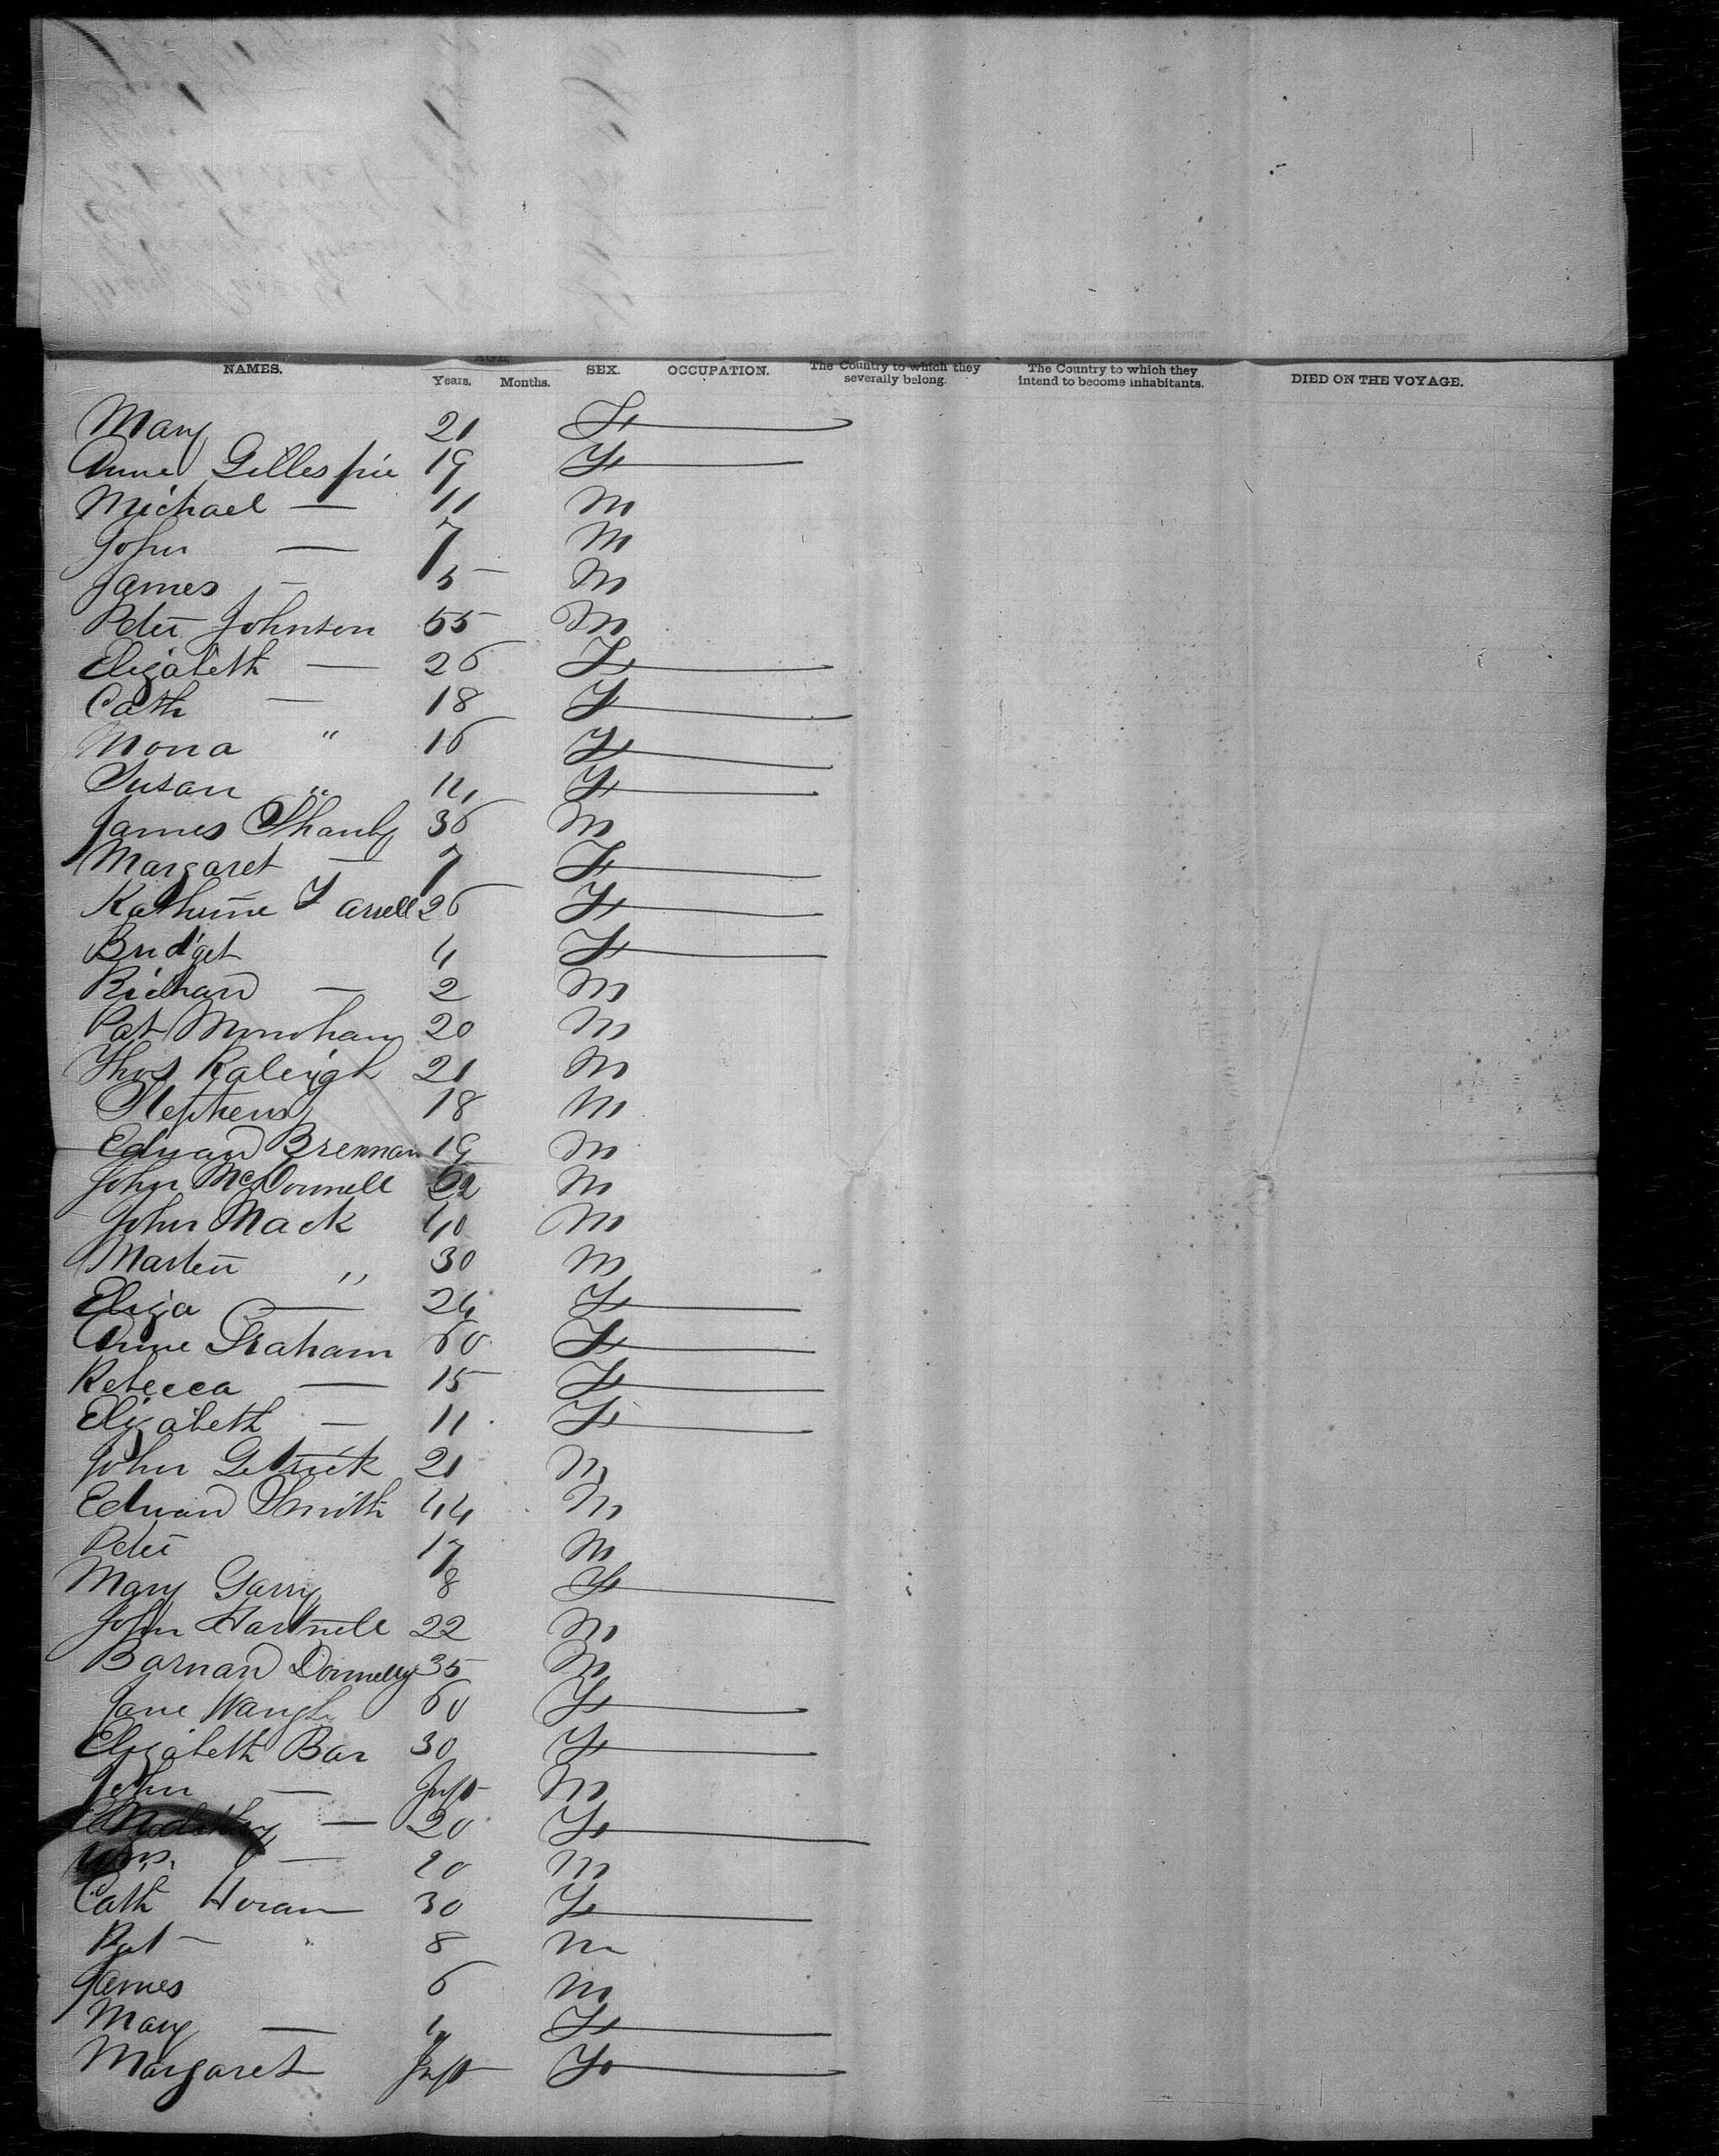 NAMES. AGE. Years. Months. SEX. OCCUPATION. The Country to which they severally belong. The Country to which they intend to become inhabitants. DIED ON THE VOYAGE.
Mary 21 F
Anne Gillespie 19 F
Michael — 11 M
John — 7 M
James — 5 M
Peter Johnson 55 M
Elizabeth — 26 F
Cath — 18 F
Mona " 16 F
Susan " 11 F
James Shanly 36 M
Margaret — 7 F
Katherine Farrell 26 F
Bridget 4 F
Richard — 2 M
Pat Monohan 20 M
Thos Raleigh 21 M
Stephens 18 M
Edward Brennan 19 M
John McDonnell 52 M
John Mack 40 M
Martin " 30 M
Eliza — 24 F
Anne Graham 60 F
Rebecca — 15 F
Elizabeth — 11 F
John Getrick 21 M
Edward Smith 44 M
Peter 17 M
Mary Garry 8 F
John Hartnell 22 M
Barnard Donnelly 35 M
Jane Waugh 60 F
Elizabeth Bar 30 F
John — Inft M
— 20 F
Wm. — 20 M
Cath Horan 30 F
Pat " 8 M
James 6 M
Mary — 4 F
Margaret Inft F